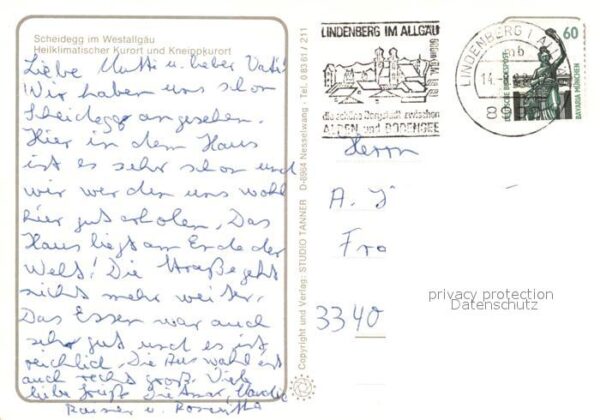 Scheidegg im Westallgäu
Heilklimatischer Kurort und Kneippkurort
Liebe Mutti u. lieber Vati!
Wir haben uns schon
Scheidegg angesehen.
Hier in dem Haus
ist es sehr schön und
wir werden uns wohl
hier gut erholen. Das
Haus liegt am Ende der
Welt! Die Straße geht
nicht mehr weiter.
Das Essen war auch
sehr gut und es ist
reichlich. Die Auswahl ist
auch recht groß. Viele
liebe Grüße
Rainer u.
Copyright und Verlag: STUDIO TANNER D-8964 Nesselwang · Tel. 0 83 61 / 211
LINDENBERG IM ALLGÄU
die schöne Bergstadt zwischen
ALPEN und BODENSEE
LINDENBERG I ALL
mb
14.
60
DEUTSCHE BUNDESPOST
BAVARIA MÜNCHEN
Herrn
A. J
Fra
3340
privacy protection
Datenschutz